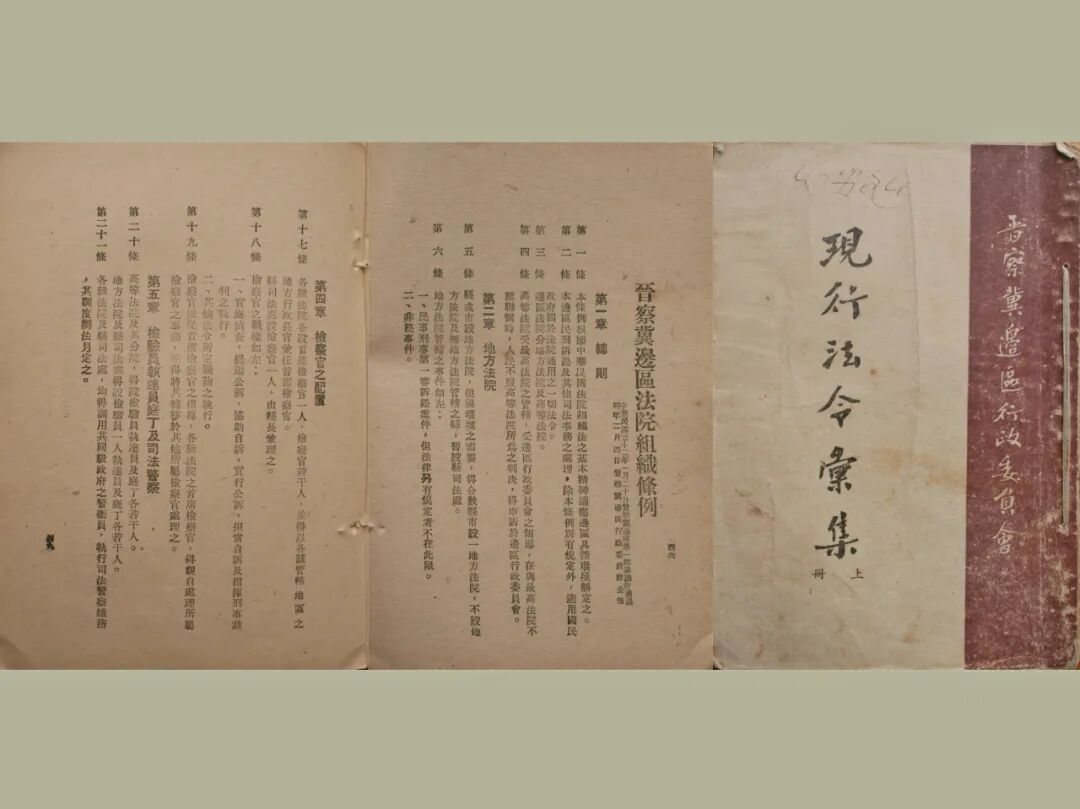 晉察冀邊區行政委員會
現行法令彙集
上册
四六
晉察冀邊區法院組織條例
第一章 總則
第一條 本條例根據中華民國法院組織法之基本精神適應邊區具體環境制定之。
第二條 本邊區民刑訴訟及其他司法事務之處理,除本條例別有規定外,適用國民
政府關於法院通用之一切法令。
第三條 邊區法院分地方法院及高等法院。
第四條 高等法院受最高法院之管轄,受邊區行政委員會之領導,在與最高法院不
能聯繫時,人民不服高等法院所為之判決,得申訴於邊區行政委員會。
第二章 地方法院
第五條 縣或市設地方法院,但因環境之需要,得合數縣市設一地方法院,不設地
方法院及無地方法院管轄之縣,暫設縣司法處。
第六條 地方法院管轄之事件如左:
一、民事刑事第一審訴訟案件,但法律另有規定者不在此限。
二、非訟事件。
第四章 檢察官之配置
第十七條 各級法院各設首席檢察官一人,檢察官若干人,並得以各該管轄地區之
地方行政長官兼任首席檢察官。
縣司法處設檢察官一人,由縣長兼理之。
第十八條 檢察官之職權如左:
一、實施偵查,提起公訴,協助自訴,實行公訴,担當自訴及指揮刑事裁
判之執行。
二、其他法令所定職務之執行。
第十九條 檢察官服從首席檢察官之指導,各級法院之首席檢察官,得親自處理所屬
檢察官之事務,並得將其轉移於其他所屬檢察官處理之。
第五章 檢驗員執達員庭丁及司法警察
第二十條 高等法院及其分院,得設檢驗員執達員及庭丁各若干人。
地方法院及縣司法處得設檢驗員一人執達員及庭丁各若干人。
第二十一條 各級法院及縣司法處,均得調用其同級政府之警衛員,執行司法警察職務
,其制度辦法另定之。